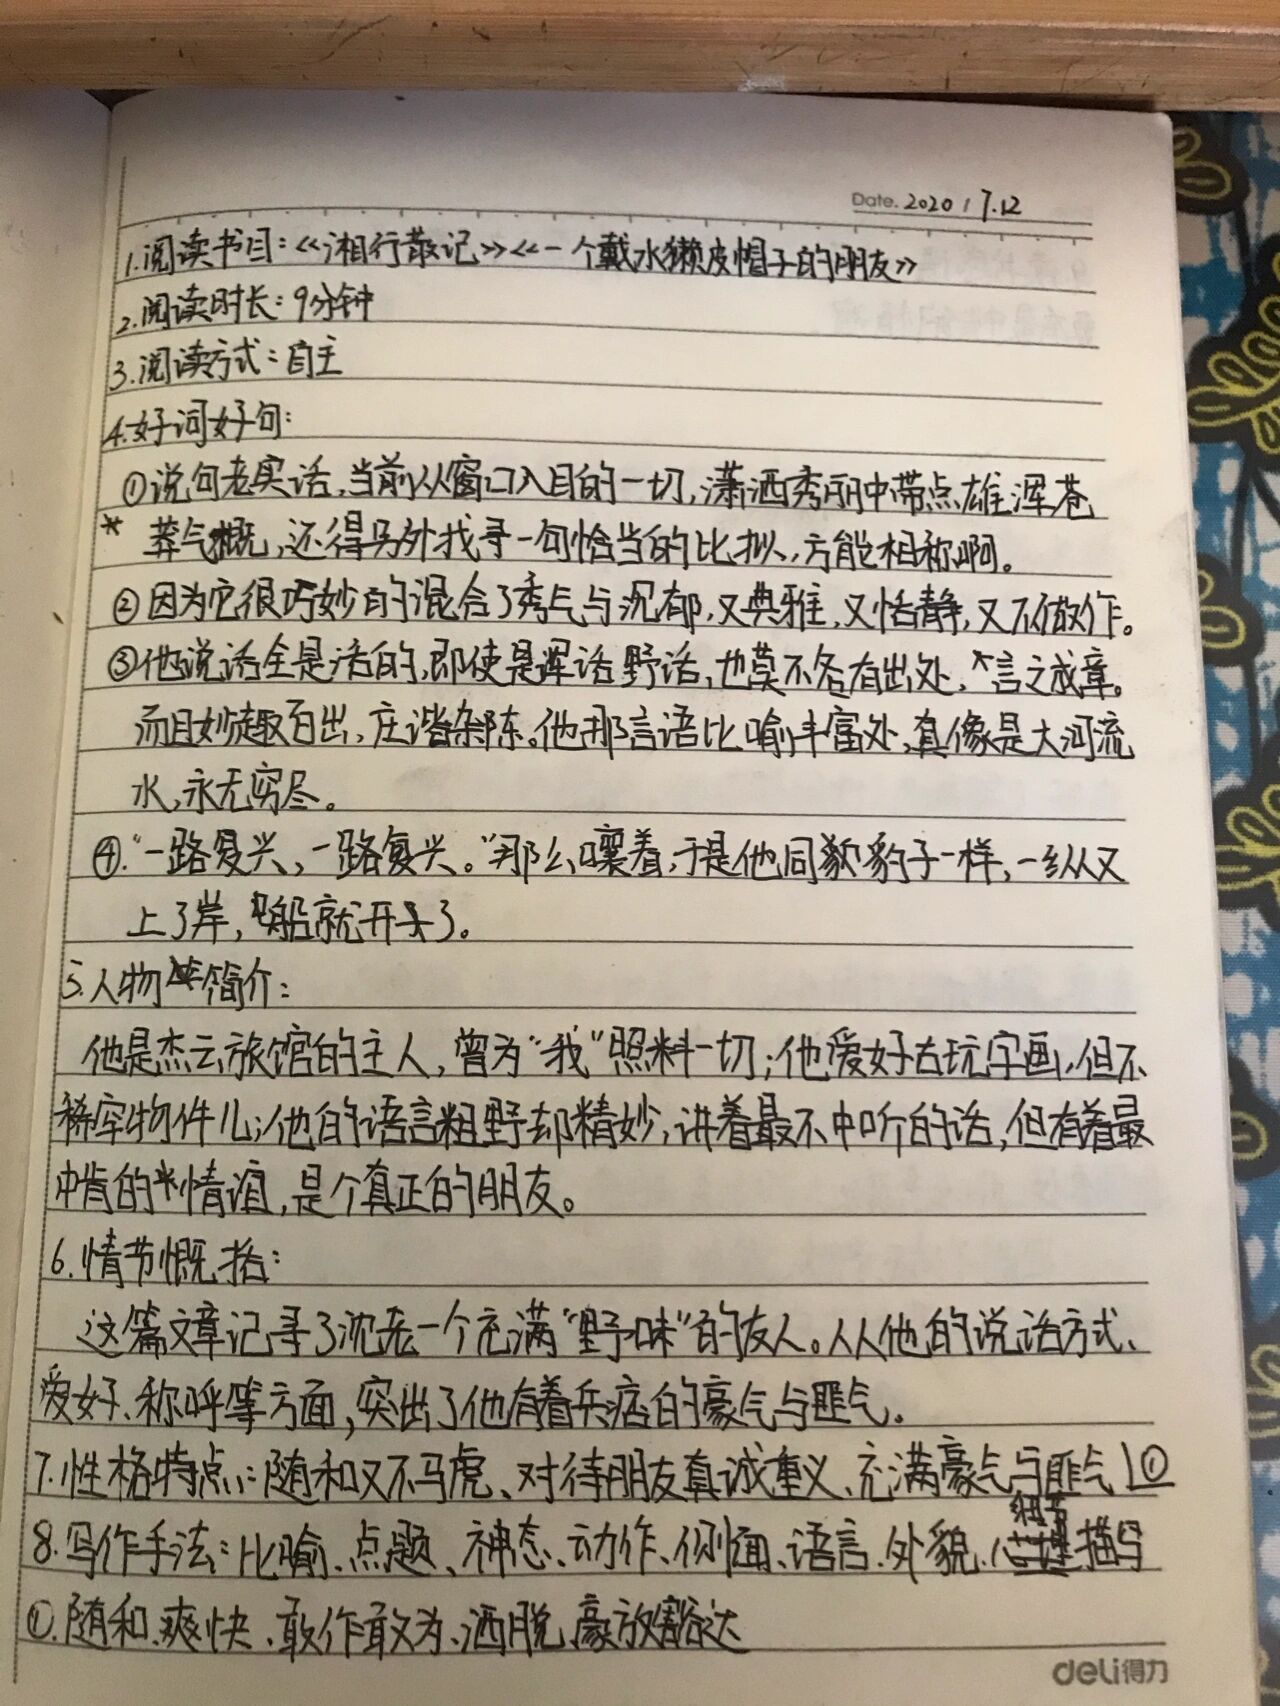 Date. 2020 / 7.12
1.阅读书目:《湘行散记》《一个戴水獭皮帽子的朋友》
2.阅读时长:9分钟
3.阅读方式:自主
4.好词好句:
①说句老实话,当前从窗口入目的一切,潇洒秀丽中带点雄浑苍
*莽气概,还得另外找寻一句恰当的比拟,方能相称啊。
②因为它很巧妙的混合了秀气与沉郁,又典雅,又恬静,又不做作。
③他说话全是活的,即使是浑话野话,也莫不各有出处,言之成章。
而且妙趣百出,庄谐杂陈。他那言语比喻丰富处,真像是大河流
水,永无穷尽。
④.“一路复兴,一路复兴。”那么嚷着,于是他同豹子一样,一纵又
上了岸,船就开头了。
5.人物简介:
他是杰云旅馆的主人,曾为“我”照料一切;他爱好古玩字画,但不
稀罕物件儿;他的语言粗野却精妙,讲着最不中听的话,但有着最
中肯的情谊,是个真正的朋友。
6.情节慨括:
这篇文章记寻了沈老一个充满“野味”的友人。从他的说话方式、
爱好、称呼等方面,突出了他有着兵痞的豪气与匪气。
7.性格特点:随和又不马虎、对待朋友真诚重义、充满豪气与匪气①
8.写作手法:比喻、点题、神态、动作、侧面、语言、外貌、细节描写
①.随和、爽快、敢作敢为、洒脱、豪放豁达
deli得力